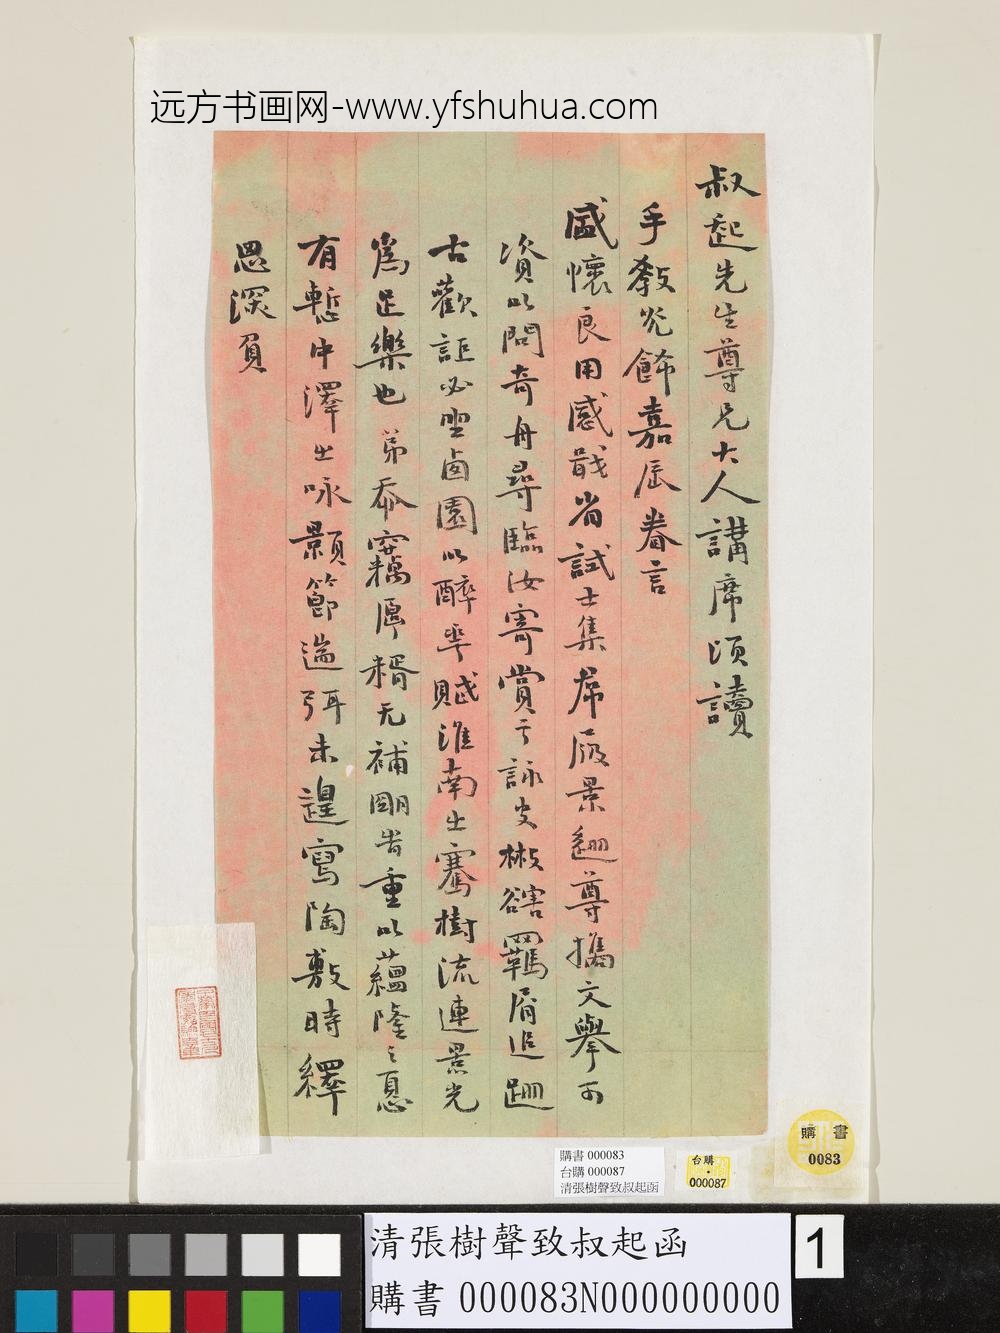 远方书画网-www.yfshuhua.com
叔起先生尊兄大人講席頃讀
手教光飾嘉辰眷言
盛懷良用感戢省試士集席履景迴尊攜文舉可
資以問奇舟尋臨汝寄賞于詠史椒羈屑追
古歡詎必西園以醉華賦淮南之騫樹流連景光
為足樂也弟忝竊厚糈无補剛昔重以蘊隆之憂
有慙中澤之咏景節遄弭未遑寫陶敷時繹
思深負
購書
0083
購書 000083
台購 000087
清張樹聲致叔起函
台購
000087
清張樹聲致叔起函
購書 000083N000000000
1